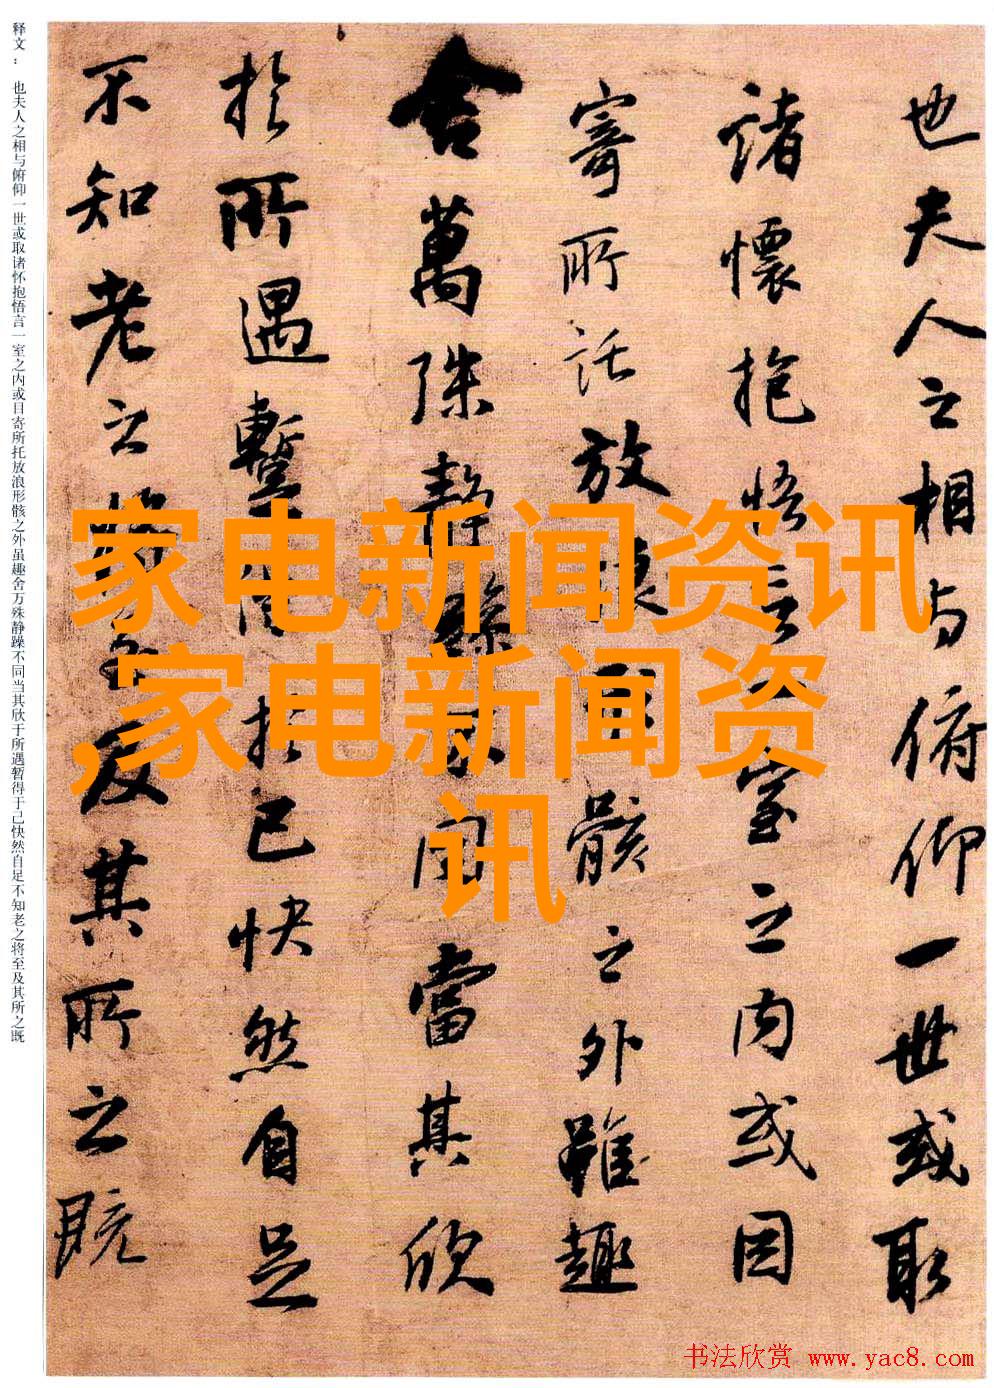 也夫人之相与俯仰一世或取
諸懷抱悟言室之内或因
寄所託放浪形骸之外雖趣
舍萬殊静躁不同當其欣
於所遇暫得於己快然自足
不知老之將至及其所之既
释文： 也夫人之相与俯仰一世或取诸怀抱悟言一室之内或目寄所托放浪形骸之外虽趣舍万殊静躁不同当其欣于所遇暂得于己快然自足不知老之将至及其所之既
家电新闻资讯
,家电新闻资
讯
书法欣赏 www.yac8.com